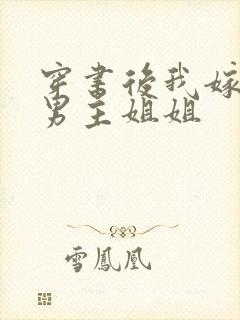 穿書後我嫁
男主姐姐
雪鳳凰